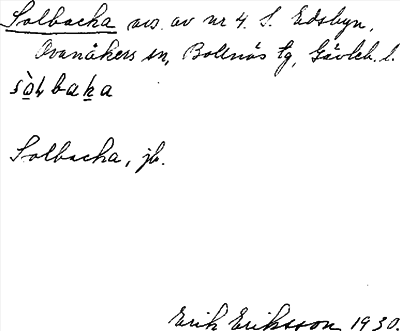 Solbacka avs. av nr 4. S. Edsbyn,
Ovanåkers sn, Bollnäs tg, Gävleb. l.
sò̱ɫbaḵa
Solbacka, jb.
Erik Eriksson 1930.